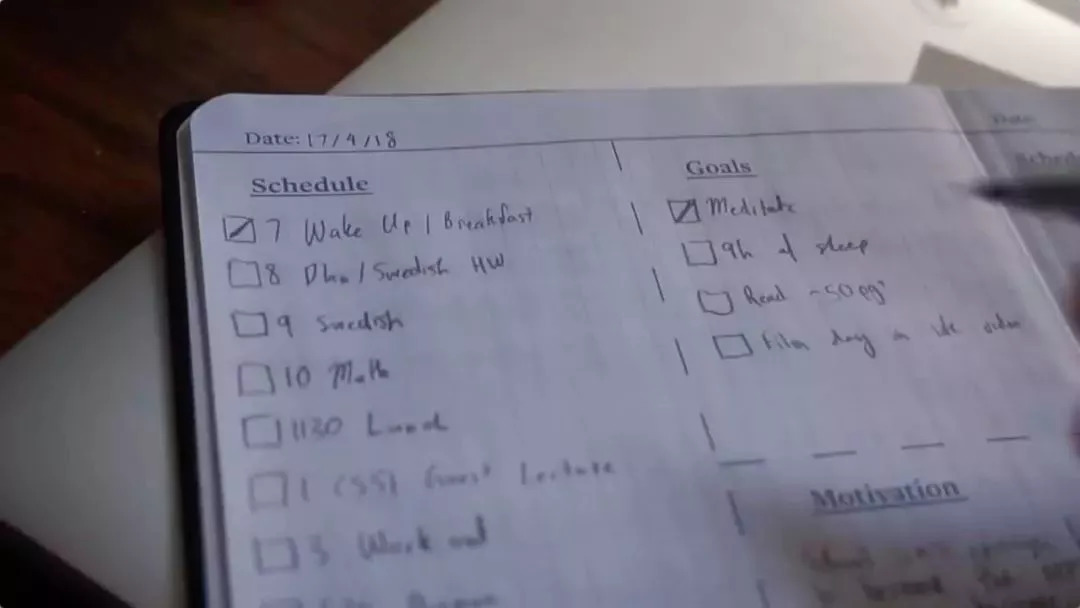 Date: 17/4/18
Schedule
7 Wake Up / Breakfast
8 / Swedish HW
9 Swedish
10 Math
1130 Lunch
1 Guest Lecture
3 Work out
Goals
Meditate
9h of sleep
Read ~50pg
Film day in life video
Motivation
Date